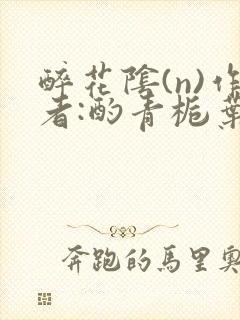 醉花陰(n)作
者:酌青栀葉
奔跑的馬里奧